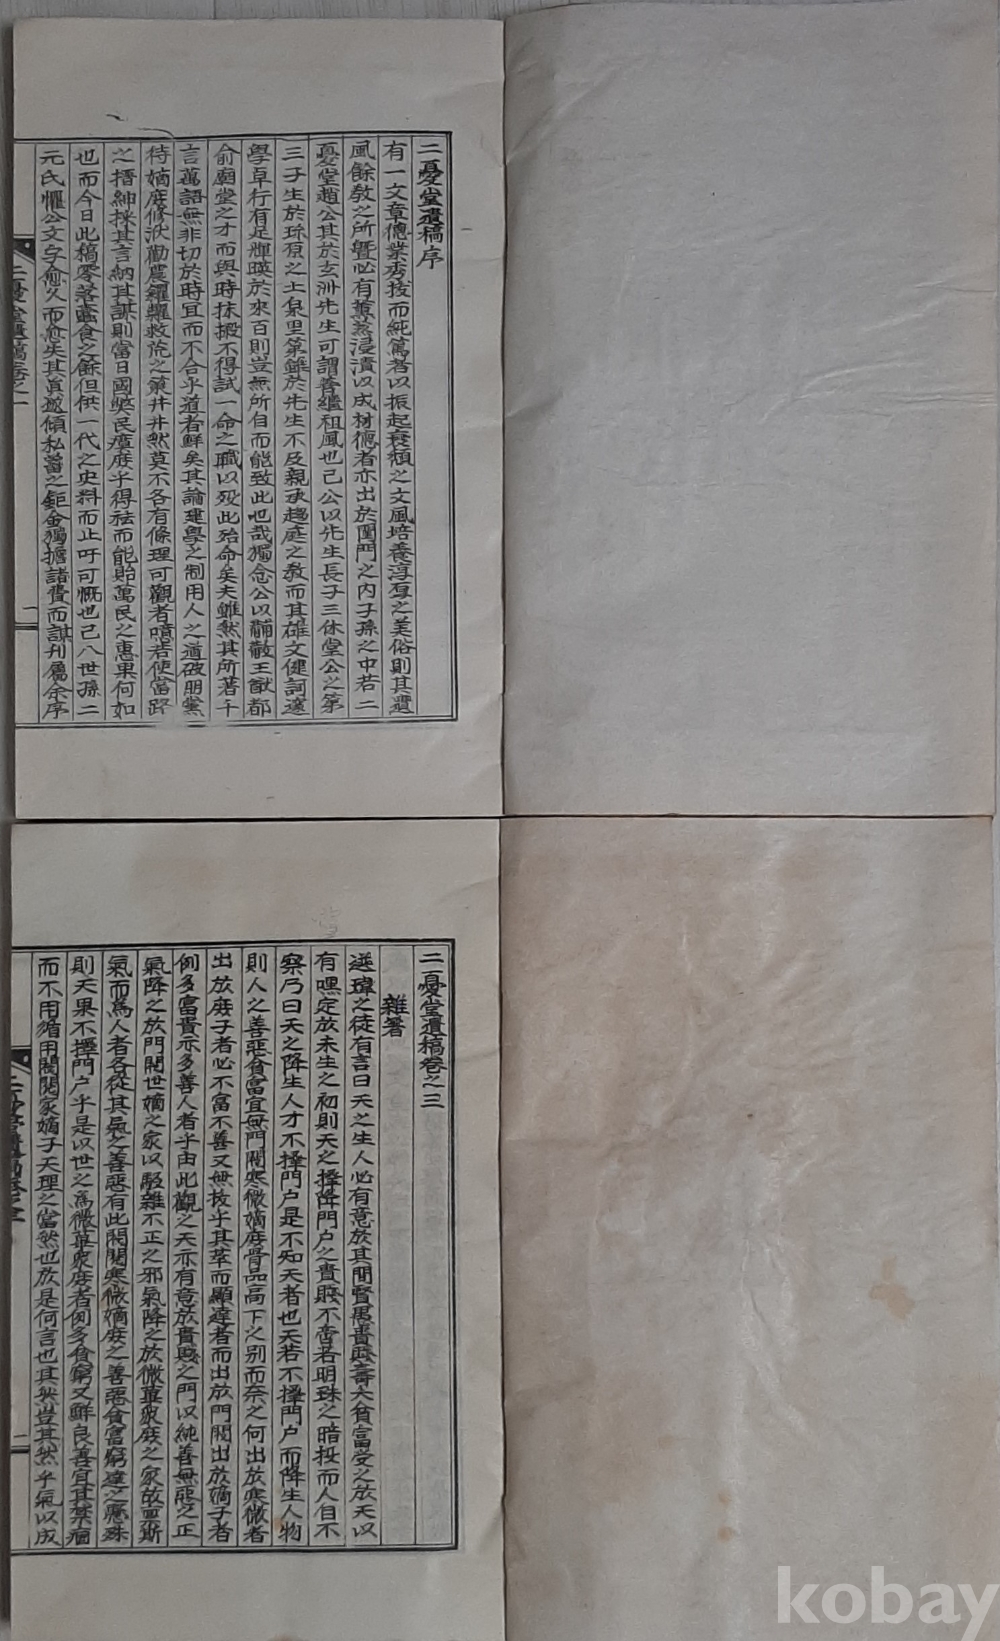 二憂堂遺稿序
有一文章德業秀拔而純篤者以振起衰頹之文風培養淳厚之美俗則其遺
風餘敎之所曁必有薰蒸浸漬以成材德者亦出於閨門之內子孫之中若二
憂堂趙公其於玄洲先生可謂善繼祖風也已公以先生長子三休堂公之第
三子生於珎原之土泉里第雖於先生不及親承趨庭之敎而其雄文健詞邃
學卓行有足輝暎於來百則豈無所自而能致此也哉獨念公以黼黻王猷都
俞廟堂之才而與時抹摋不得試一命之職以歿此殆命矣夫雖然其所著千
言萬語無非切於時宜而不合乎道者鮮矣其論建學之制用人之道破朋黨
待嫡庶修泼勸農糴糶救荒之策井井然莫不各有條理可觀者噫若使當路
之搢紳採其言納其謀則當日國弊民瘼庶乎得祛而能貽萬民之惠果何如
也而今日此稿零落蠹食之餘但供一代之史料而止吁可慨也已八世孫二
元氏懼公文字愈久而愈失其眞迺傾私蓄之鉅金獨擔諸費而謀刊屬余序
二憂堂遺稿卷之一
一
二憂堂遺稿卷之三
雜著
遂瑋之徒有言曰天之生人必有意放其間賢愚貴賤壽夭貧富受之放天以
有嘿定放未生之初則天之擇降門户之貴賤不啻若明珠之暗投而人自不
察乃曰天之降生人才不擇門户是不知天者也天若不擇門户而降生人物
則人之善惡貧富宜無門閥寒微嫡庶骨品高下之别而奈之何出放寒微者
出放庶子者必不富不善又無拔乎其萃而顯達者而出放門閥出放嫡子者
例多富貴亦多善人者乎由此觀之天亦有意放貴賤之門以純善無惡之正
氣降之放門閥世嫡之家以駁雜不正之邪氣降之放微華衆庶之家故稟斯
氣而爲人者各從其氣之善惡有此閥閱寒微嫡庶之善惡貧富窮達之懸殊
則天果不擇門户乎是以世之爲微華衆庶者例多貧窮又鮮良善宜其禁痼
而不用循用閥閱家嫡子天理之當然也放是何言也其然豈其然乎氣以成
二憂堂遺稿卷之三
一
kobay